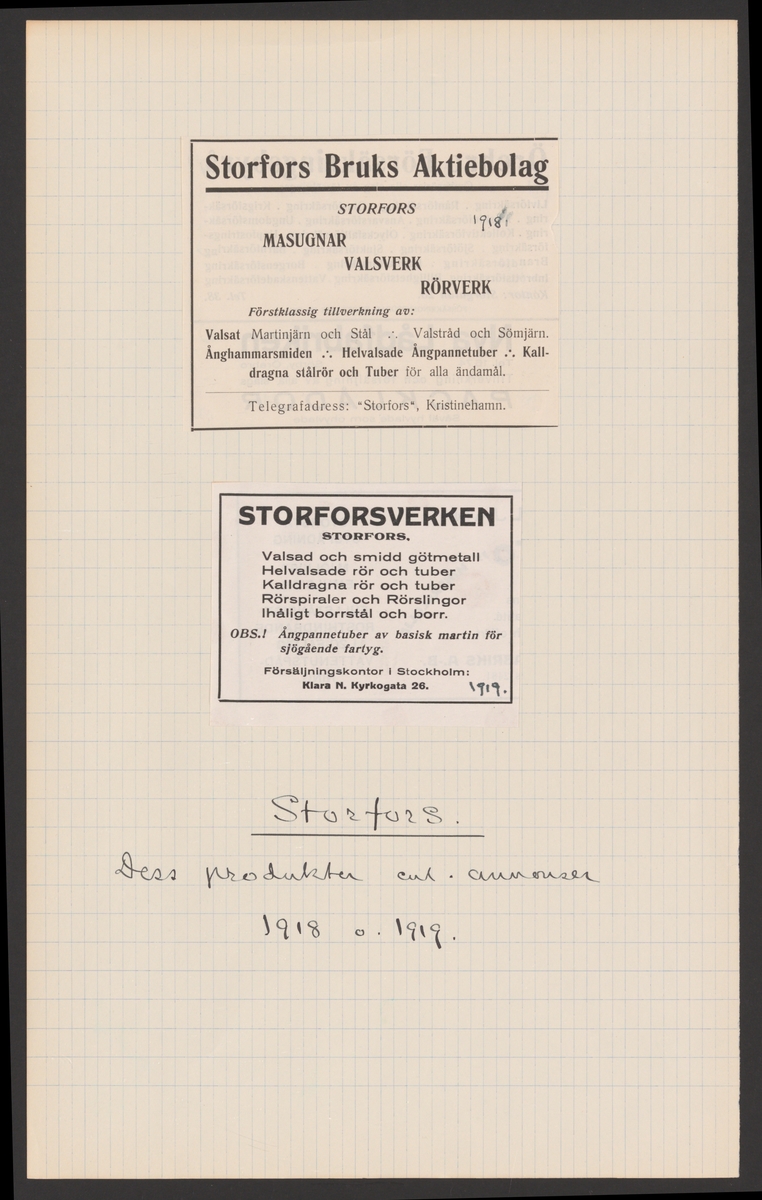 Storfors Bruks Aktiebolag
STORFORS
1918.
MASUGNAR
VALSVERK
RÖRVERK
Förstklassig tillverkning av:
Valsat Martinjärn och Stål .·. Valstråd och Sömjärn.
Ånghammarsmiden .·. Helvalsade Ångpannetuber .·. Kall-
dragna stålrör och Tuber för alla ändamål.
Telegrafadress: "Storfors", Kristinehamn.
STORFORSVERKEN
STORFORS.
Valsad och smidd götmetall
Helvalsade rör och tuber
Kalldragna rör och tuber
Rörspiraler och Rörslingor
Ihåligt borrstål och borr.
OBS.! Ångpannetuber av basisk martin för
sjögående fartyg.
Försäljningskontor i Stockholm:
Klara N. Kyrkogata 26.
1919.
Storfors.
Dess produkter enl. annonser
1918 o. 1919.